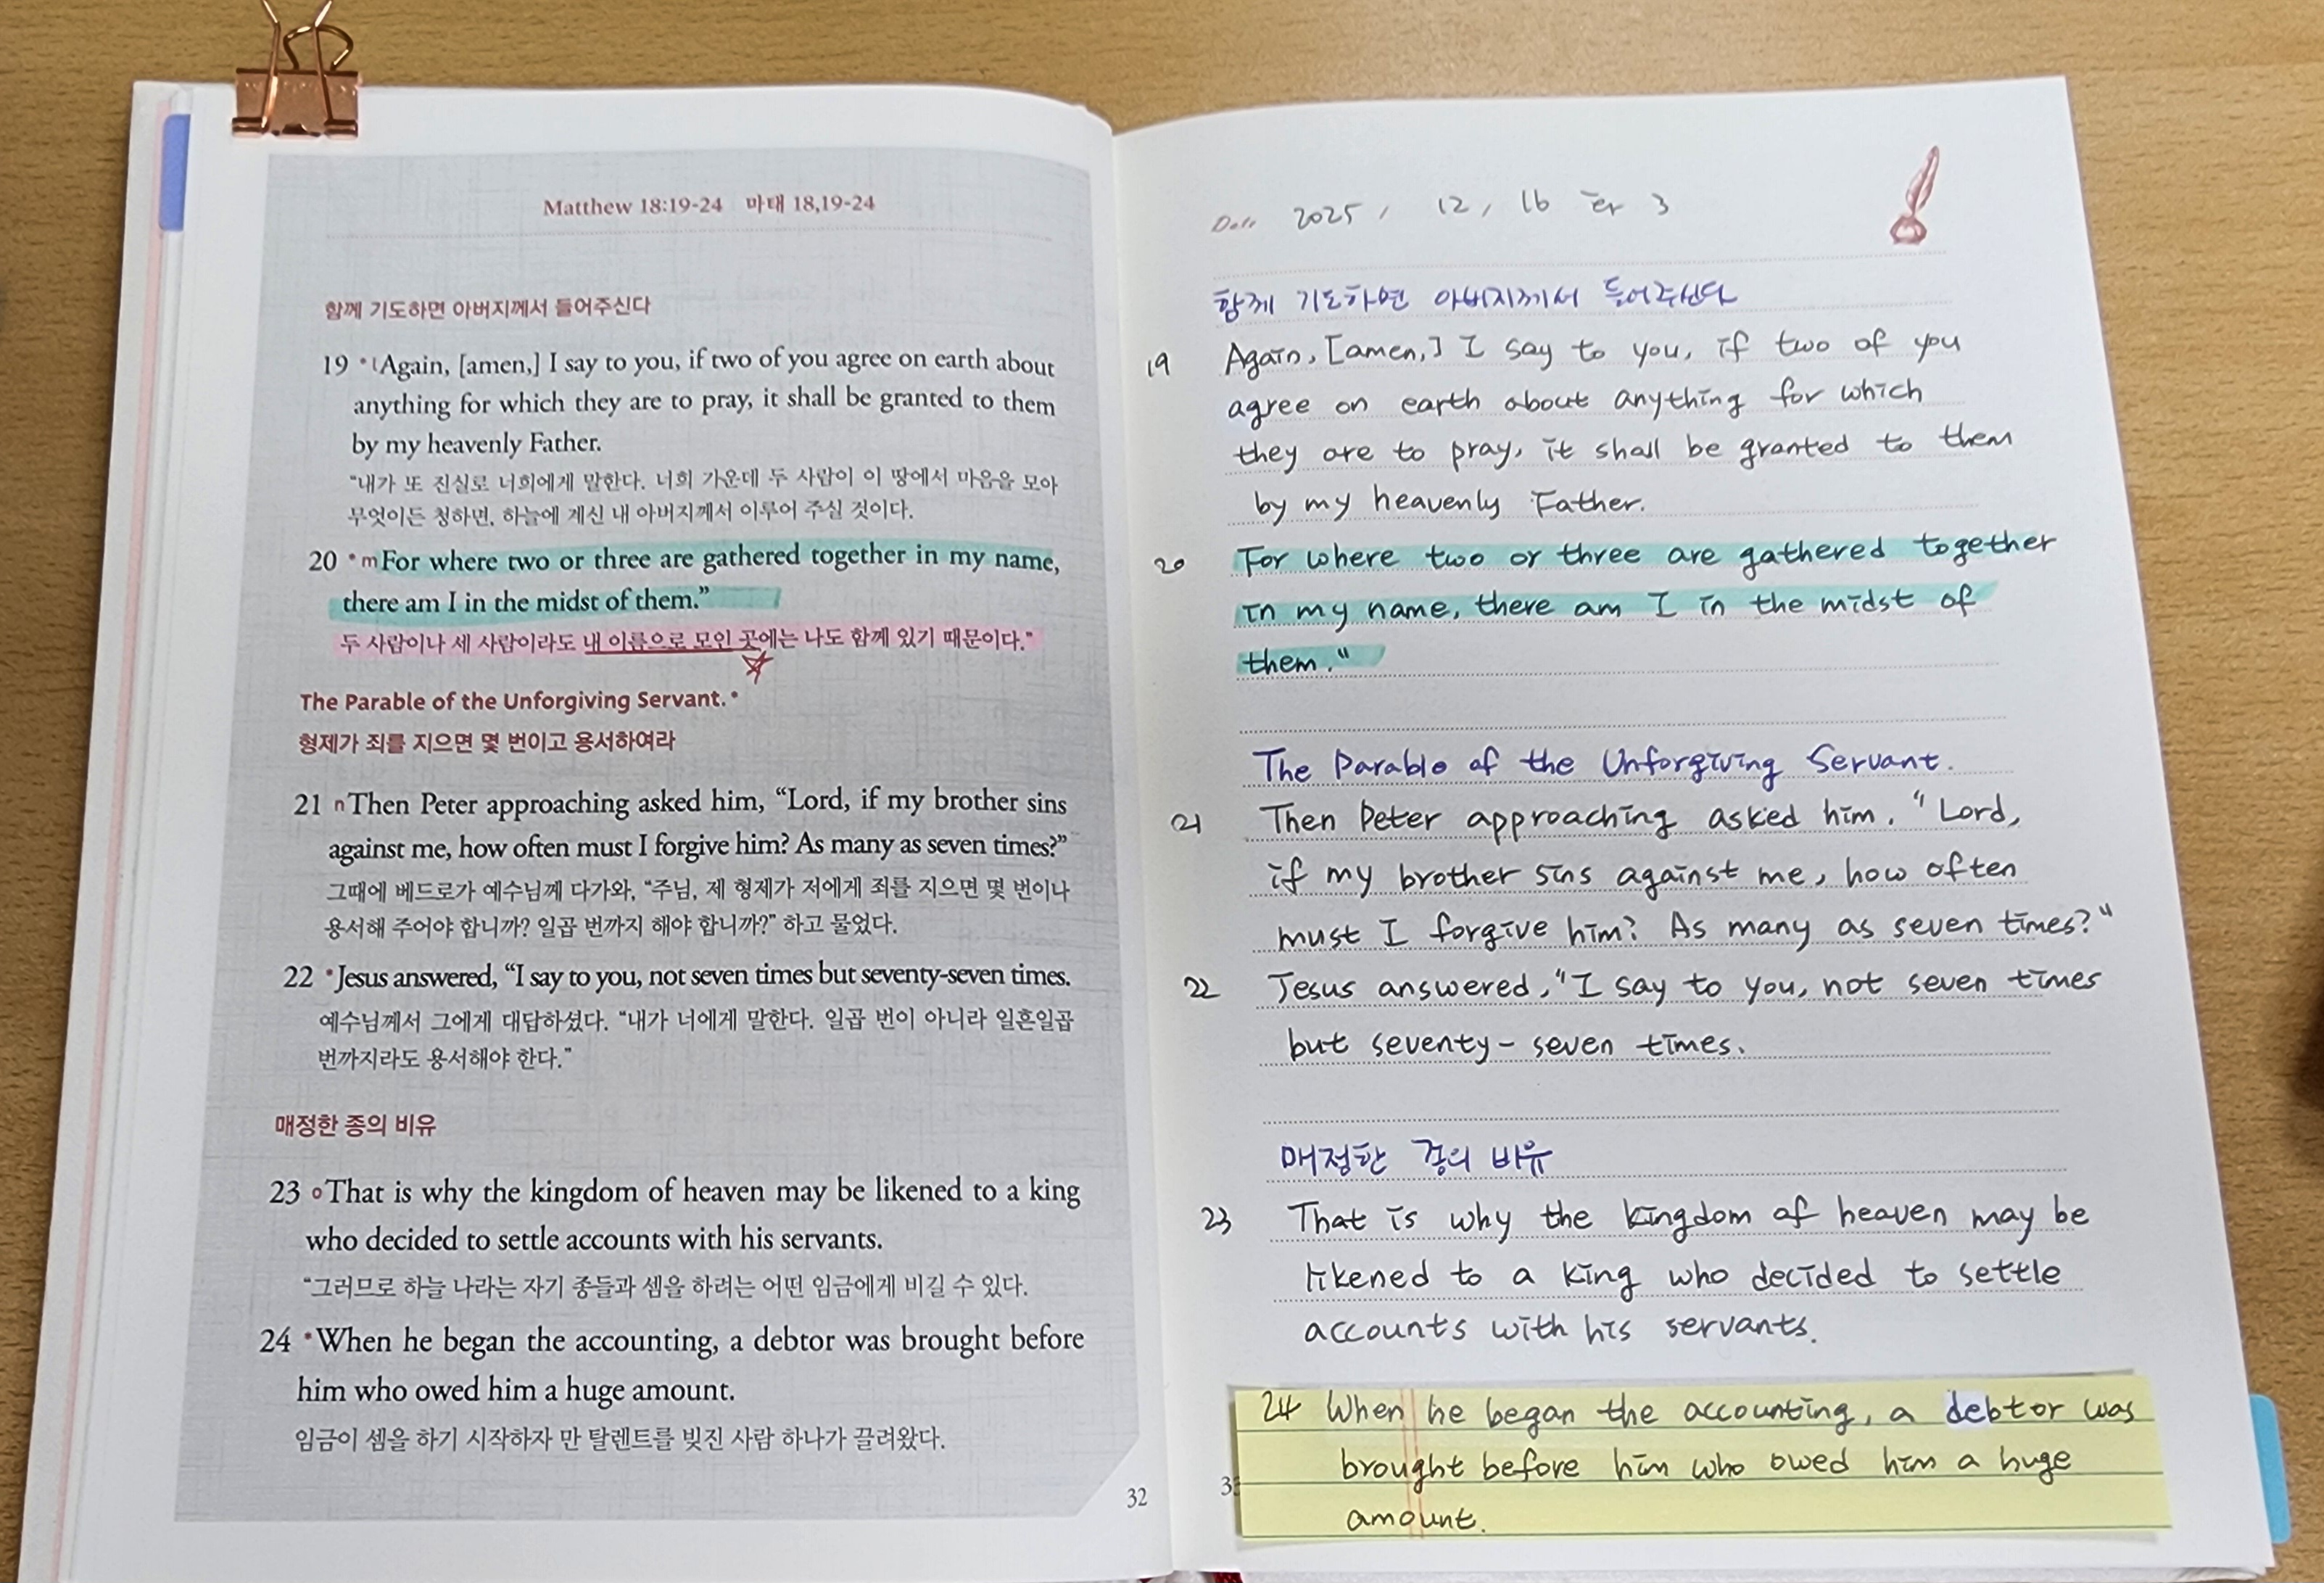 Matthew 18:19-24 마태 18,19-24
함께 기도하면 아버지께서 들어주신다
19 *lAgain, [amen,] I say to you, if two of you agree on earth about
anything for which they are to pray, it shall be granted to them
by my heavenly Father.
“내가 또 진실로 너희에게 말한다. 너희 가운데 두 사람이 이 땅에서 마음을 모아
무엇이든 청하면, 하늘에 계신 내 아버지께서 이루어 주실 것이다.
20 *mFor where two or three are gathered together in my name,
there am I in the midst of them.”
두 사람이나 세 사람이라도 내 이름으로 모인 곳에는 나도 함께 있기 때문이다.”
The Parable of the Unforgiving Servant.*
형제가 죄를 지으면 몇 번이고 용서하여라
21 nThen Peter approaching asked him, “Lord, if my brother sins
against me, how often must I forgive him? As many as seven times?”
그때에 베드로가 예수님께 다가와, “주님, 제 형제가 저에게 죄를 지으면 몇 번이나
용서해 주어야 합니까? 일곱 번까지 해야 합니까?” 하고 물었다.
22 *Jesus answered, “I say to you, not seven times but seventy-seven times.
예수님께서 그에게 대답하셨다. “내가 너에게 말한다. 일곱 번이 아니라 일흔일곱
번까지라도 용서해야 한다.”
매정한 종의 비유
23 oThat is why the kingdom of heaven may be likened to a king
who decided to settle accounts with his servants.
“그러므로 하늘 나라는 자기 종들과 셈을 하려는 어떤 임금에게 비길 수 있다.
24 *When he began the accounting, a debtor was brought before
him who owed him a huge amount.
임금이 셈을 하기 시작하자 만 탈렌트를 빚진 사람 하나가 끌려왔다.
32
Date 2025, 12, 16 화 3
함께 기도하면 아버지께서 들어주신다
19 Again, [amen,] I say to you, if two of you
agree on earth about anything for which
they are to pray, it shall be granted to them
by my heavenly Father.
20 For where two or three are gathered together
in my name, there am I in the midst of
them."
The Parable of the Unforgiving Servant.
21 Then Peter approaching asked him, "Lord,
if my brother sins against me, how often
must I forgive him? As many as seven times?"
22 Jesus answered, "I say to you, not seven times
but seventy-seven times.
매정한 종의 비유
23 That is why the kingdom of heaven may be
likened to a king who decided to settle
accounts with his servants.
24 When he began the accounting, a debtor was
brought before him who owed him a huge
amount.